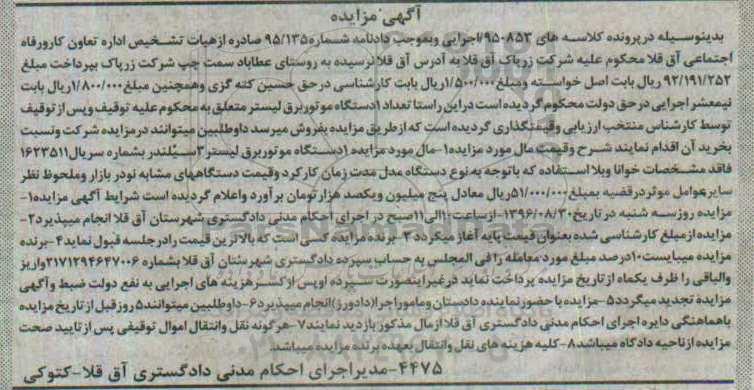 آگهی مزایده
بدینوسیله درپرونده کلاسه های ۹۵۰۸۵۳/اجرایی وبموجب دادنامه شماره۹۵/۱۳۵ صادره ازهیات تشخیص اداره تعاون کارورفاه
اجتماعی آق قلا محکوم علیه شرکت زرپاک آق قلا به آدرس آق قلا نرسیده به روستای عطاباد سمت چپ شرکت زرپاک بپرداخت مبلغ
۹۲/۱۹۱/۲۵۲ ریال بابت اصل خواسته ومبلغ۱/۵۰۰/۰۰۰ریال بابت کارشناسی درحق حسین کته گزی وهمچنین مبلغ۱/۸۰۰/۰۰۰ریال بابت
نیمعشر اجرایی درحق دولت محکوم گردیده است دراین راستا تعداد ۱دستگاه موتوربرق لیستر متعلق به محکوم علیه توقیف وپس از توقیف
توسط کارشناس منتخب ارزیابی وقیمتگذاری گردیده است که ازطریق مزایده بفروش میرسد داوطلبین میتوانند درمزایده شرکت ونسبت
بخرید آن اقدام نمایند شرح وقیمت مال مورد مزایده۱-مال مورد مزایده ۱دستگاه موتوربرق لیستر۳سیلندر بشماره سریال۱۶۲۳۵۱۱
فاقد مشخصات خوانا وبلا استفاده که باتوجه به نوع دستگاه مدل مدت زمان کارکرد وقیمت دستگاههای مشابه نودر بازار وملحوظ نظر
سایرعوامل موثردرقضیه بمبلغ۵۱/۰۰۰/۰۰۰ریال معادل پنج میلیون ویکصد هزارتومان برآورد واعلام گردیده است شرایط آگهی مزایده۱-
مزایده روزسه شنبه در تاریخ۱۳۹۶/۰۸/۳۰-ازساعت۱۰الی۱۱صبح در اجرای احکام مدنی دادگستری شهرستان آق قلا انجام میپذیرد۲-
مزایده ازمبلغ کارشناسی شده بعنوان قیمت پایه آغاز میگردد۳-برنده مزایده کسی است که بالاترین قیمت رادرجلسه قبول نماید۴-برنده
مزایده میبایست۱۰درصد مبلغ مورد معامله رافی المجلس به حساب سپرده دادگستری شهرستان آق قلا بشماره ۲۱۷۱۲۹۴۶۴۷۰۰۶واریز
والباقی را ظرف یکماه ازتاریخ مزایده پرداخت نماید درغیراینصورت سپرده اوپس ازکسرهزینه های اجرایی به نفع دولت ضبط وآگهی
مزایده تجدید میگردد۵-مزایده باحضورنماینده دادستان ومامور اجرا(دادورز)انجام میپذیرد۶-داوطلبین میتوانند۵روزقبل ازتاریخ مزایده
باهماهنگی دایره اجرای احکام مدنی دادگستری آق قلا ازمال مذکور بازدید نمایند۷-هرگونه نقل وانتقال اموال توقیفی پس ازتایید صحت
مزایده ازناحیه دادگاه میباشد۸-کلیه هزینه های نقل وانتقال بعهده برنده مزایده میباشد.
۴۴۷۵-مدیراجرای احکام مدنی دادگستری آق قلا-کتوکی